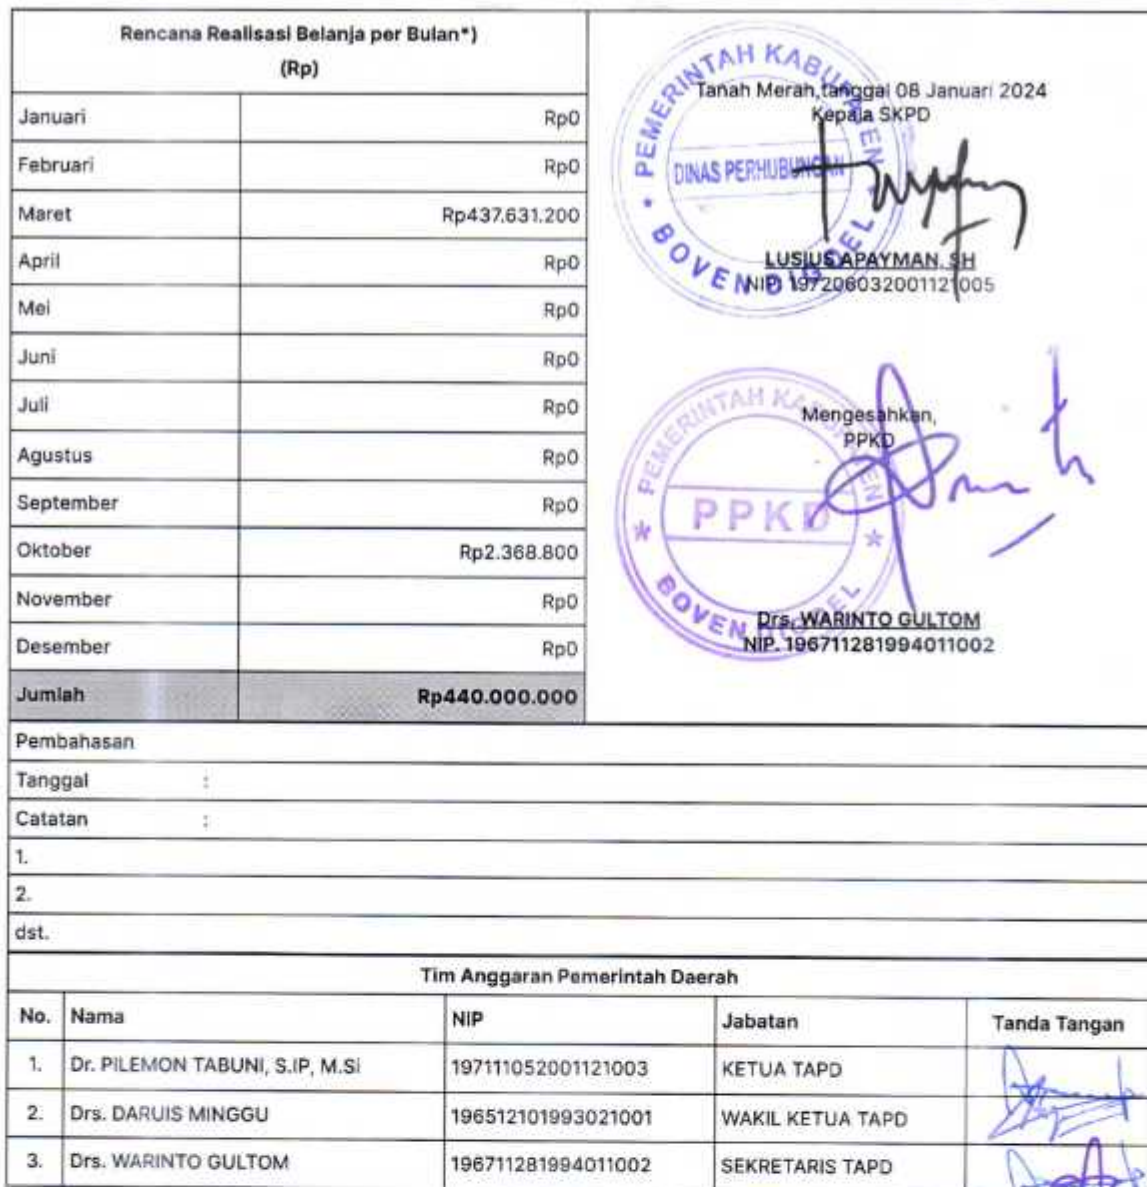 Rencana Realisasi Belanja per Bulan*)
(Rp)
Januari Rp0
Februari Rp0
Maret Rp437.631.200
April Rp0
Mei Rp0
Juni Rp0
Juli Rp0
Agustus Rp0
September Rp0
Oktober Rp2.368.800
November Rp0
Desember Rp0
Jumlah Rp440.000.000
PEMERINTAH KABUPATEN
DINAS PERHUBUNGAN
BOVEN DIGOEL
Tanah Merah,tanggal 08 Januari 2024
Kepala SKPD
LUSIUS APAYMAN, SH
NIP. 197206032001121005
PEMERINTAH KABUPATEN
PPKD
BOVEN DIGOEL
Mengesahkan,
PPKD
Drs. WARINTO GULTOM
NIP. 196711281994011002
Pembahasan
Tanggal :
Catatan :
1.
2.
dst.
Tim Anggaran Pemerintah Daerah
No. Nama NIP Jabatan Tanda Tangan
1. Dr. PILEMON TABUNI, S.IP, M.Si 197111052001121003 KETUA TAPD
2. Drs. DARUIS MINGGU 196512101993021001 WAKIL KETUA TAPD
3. Drs. WARINTO GULTOM 196711281994011002 SEKRETARIS TAPD